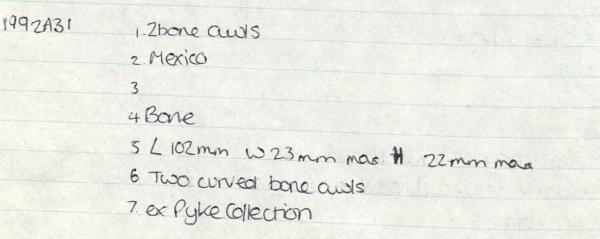 1992A31 1. 2bone awls
2. Mexico
3
4 Bone
5 L 102mm W 23mm max H 22mm max
6 Two curved bone awls
7. ex Pyke Collection